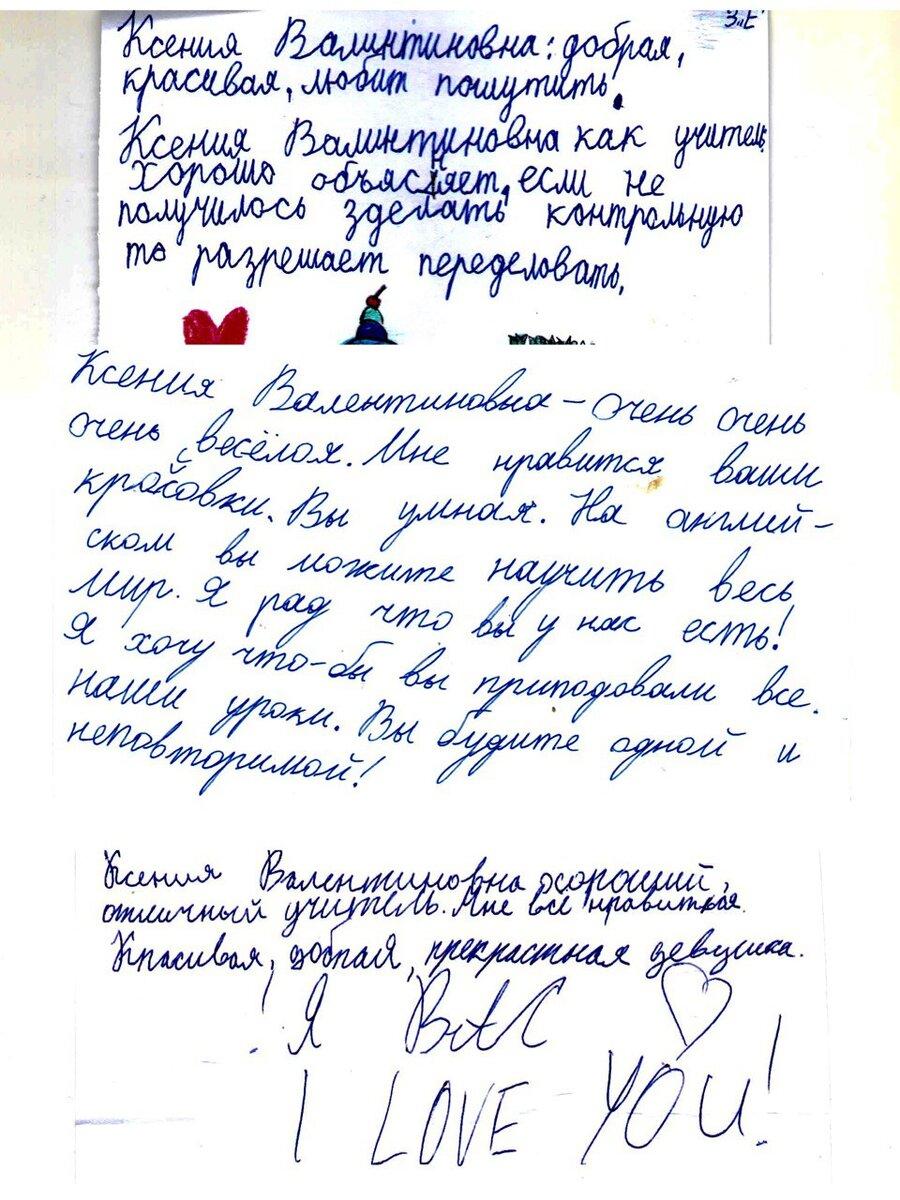 3 "Е"
Ксения Валинтиновна: добрая,
красивая, любит пошутить.
Ксения Валинтиновна как учитель
хорошо объясняет, если не
получилось зделать контрольную
то разрешает переделовать.
Ксения Валентиновна – очень очень
очень весёлая. Мне нравится ваши
красовки. Вы умная. На англий-
ском вы можите научить весь
мир. Я рад что вы у нас есть!
Я хочу что-бы вы приподовали все
наши уроки. Вы будите одной и
неповторимой!
Ксения Валентиновна хороший,
отличный учитель. Мне всё нравиться.
Красивая, добрая, прекрастная девушка.
Я ВАС ♡!
I LOVE YOU!